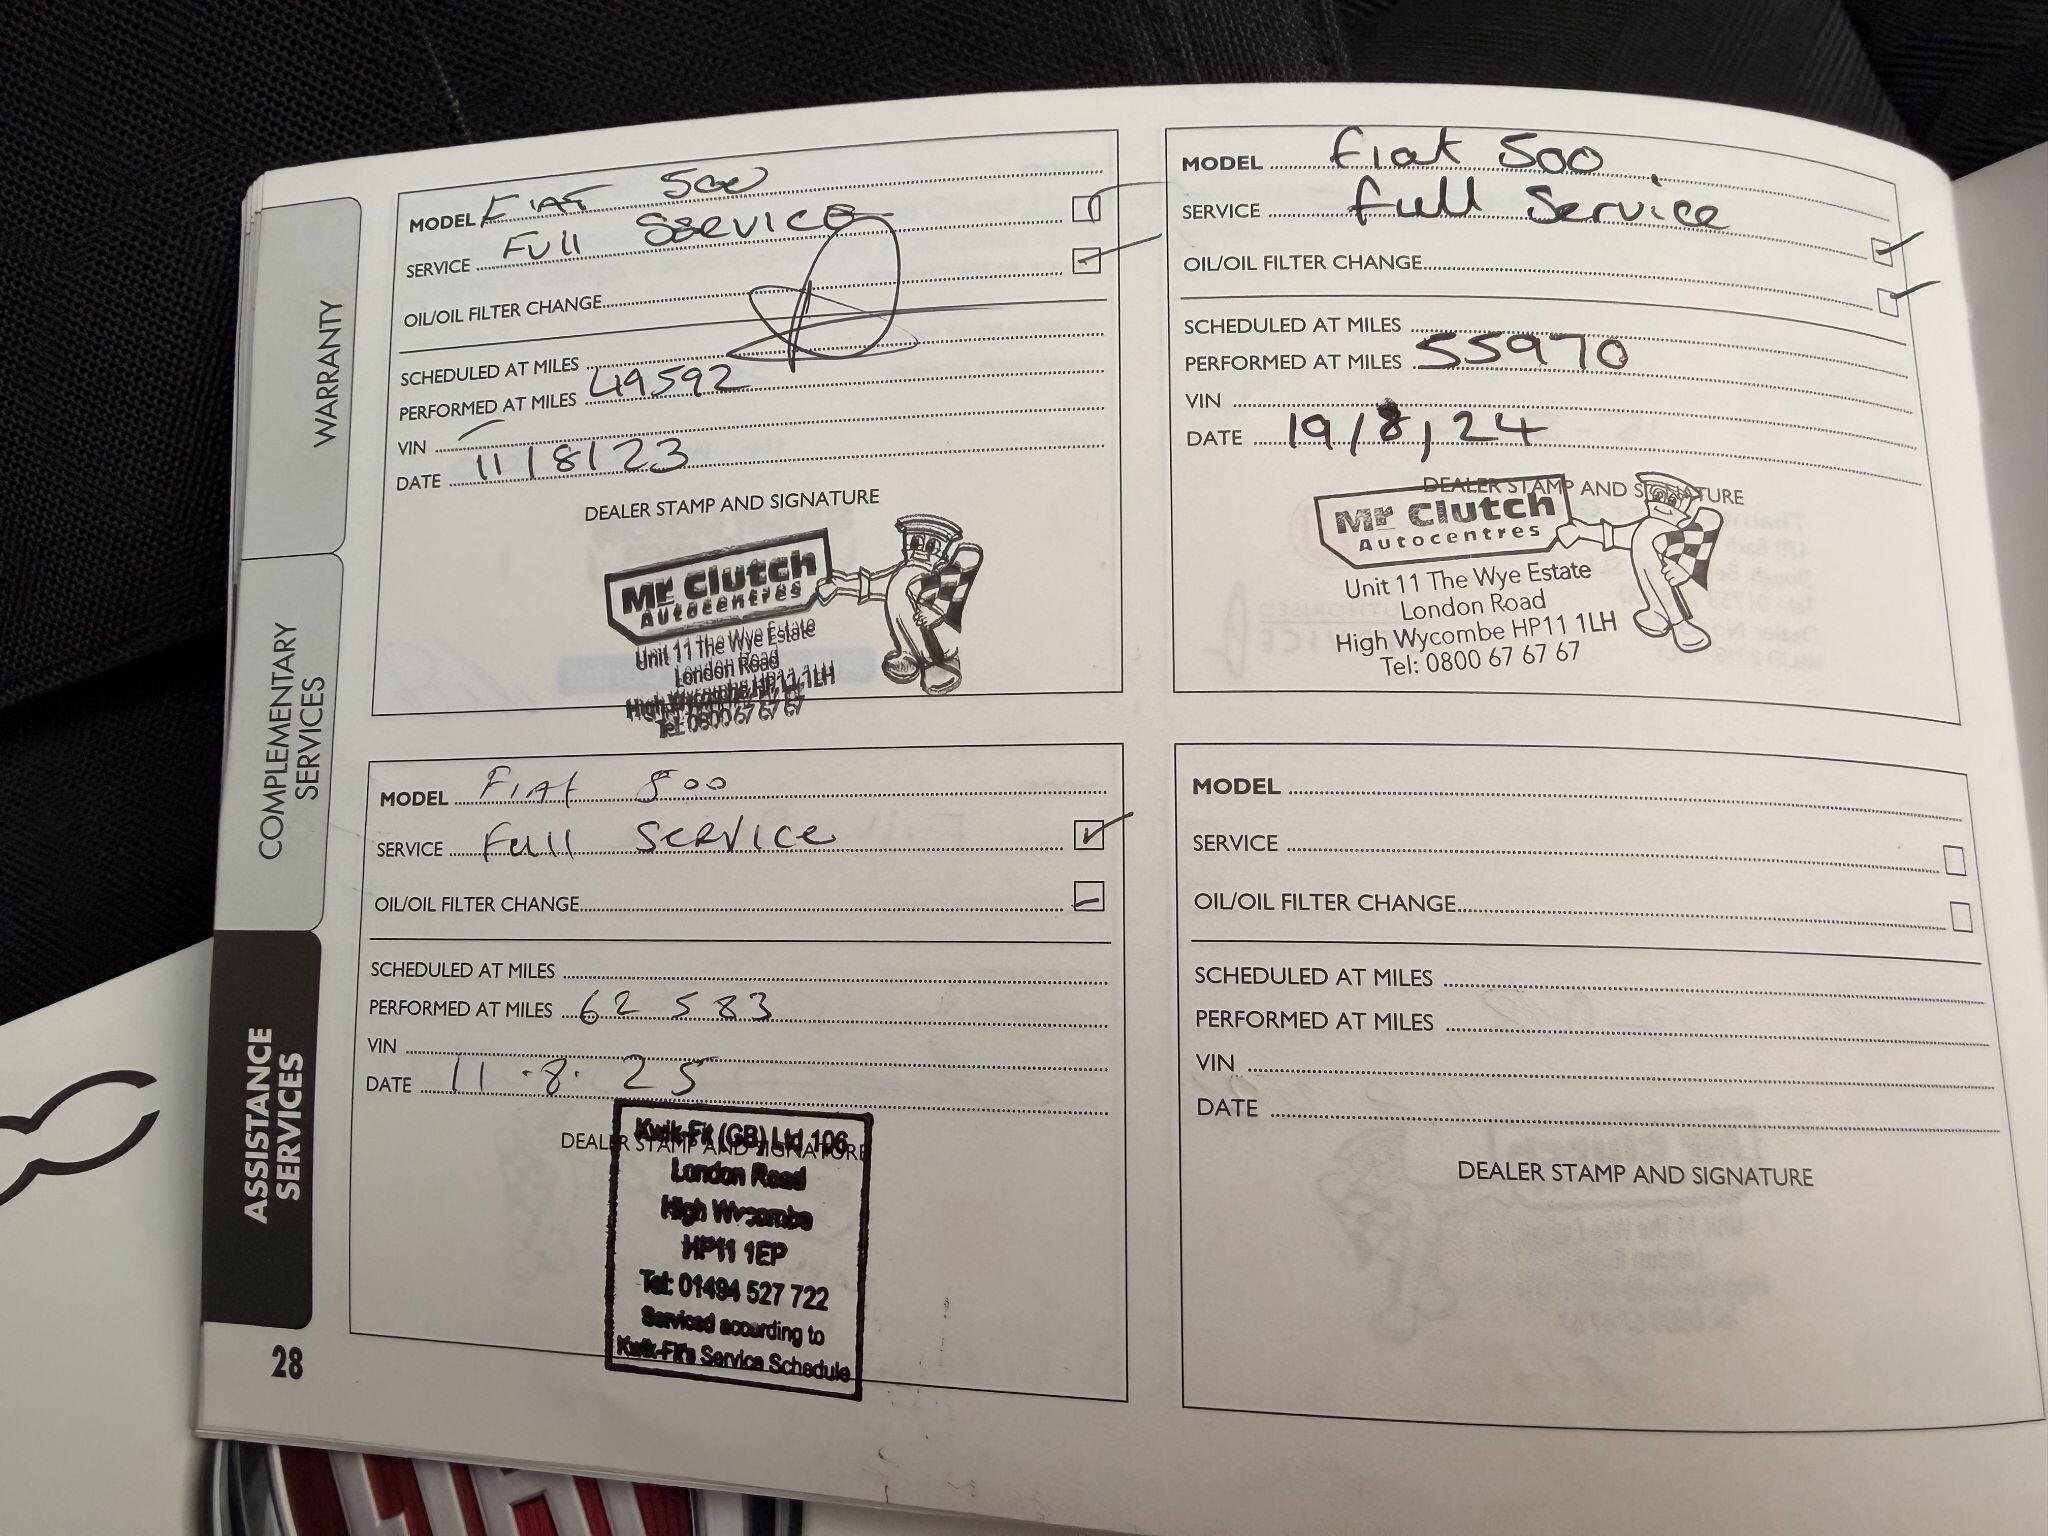 WARRANTY
COMPLEMENTARY
SERVICES
ASSISTANCE
SERVICES
28
MODEL FIAT 500
SERVICE Full Service
OIL/OIL FILTER CHANGE
SCHEDULED AT MILES
PERFORMED AT MILES 49592
VIN
DATE 11/8/23
DEALER STAMP AND SIGNATURE
Mr Clutch
Autocentres
Unit 11 The Wye Estate
London Road
High Wycombe HP11 1LH
Tel: 0800 67 67 67
MODEL Fiat 500
SERVICE Full Service
OIL/OIL FILTER CHANGE
SCHEDULED AT MILES
PERFORMED AT MILES 55970
VIN
DATE 19/8/24
DEALER STAMP AND SIGNATURE
Mr Clutch
Autocentres
Unit 11 The Wye Estate
London Road
High Wycombe HP11 1LH
Tel: 0800 67 67 67
MODEL Fiat 500
SERVICE Full SERVICE
OIL/OIL FILTER CHANGE
SCHEDULED AT MILES
PERFORMED AT MILES 62 583
VIN
DATE 11.8.25
DEALER STAMP AND SIGNATURE
Kwik-Fit (GB) Ltd 106
London Road
High Wycombe
HP11 1EP
Tel: 01494 527 722
Serviced according to
Kwik-Fit's Service Schedule
MODEL
SERVICE
OIL/OIL FILTER CHANGE
SCHEDULED AT MILES
PERFORMED AT MILES
VIN
DATE
DEALER STAMP AND SIGNATURE